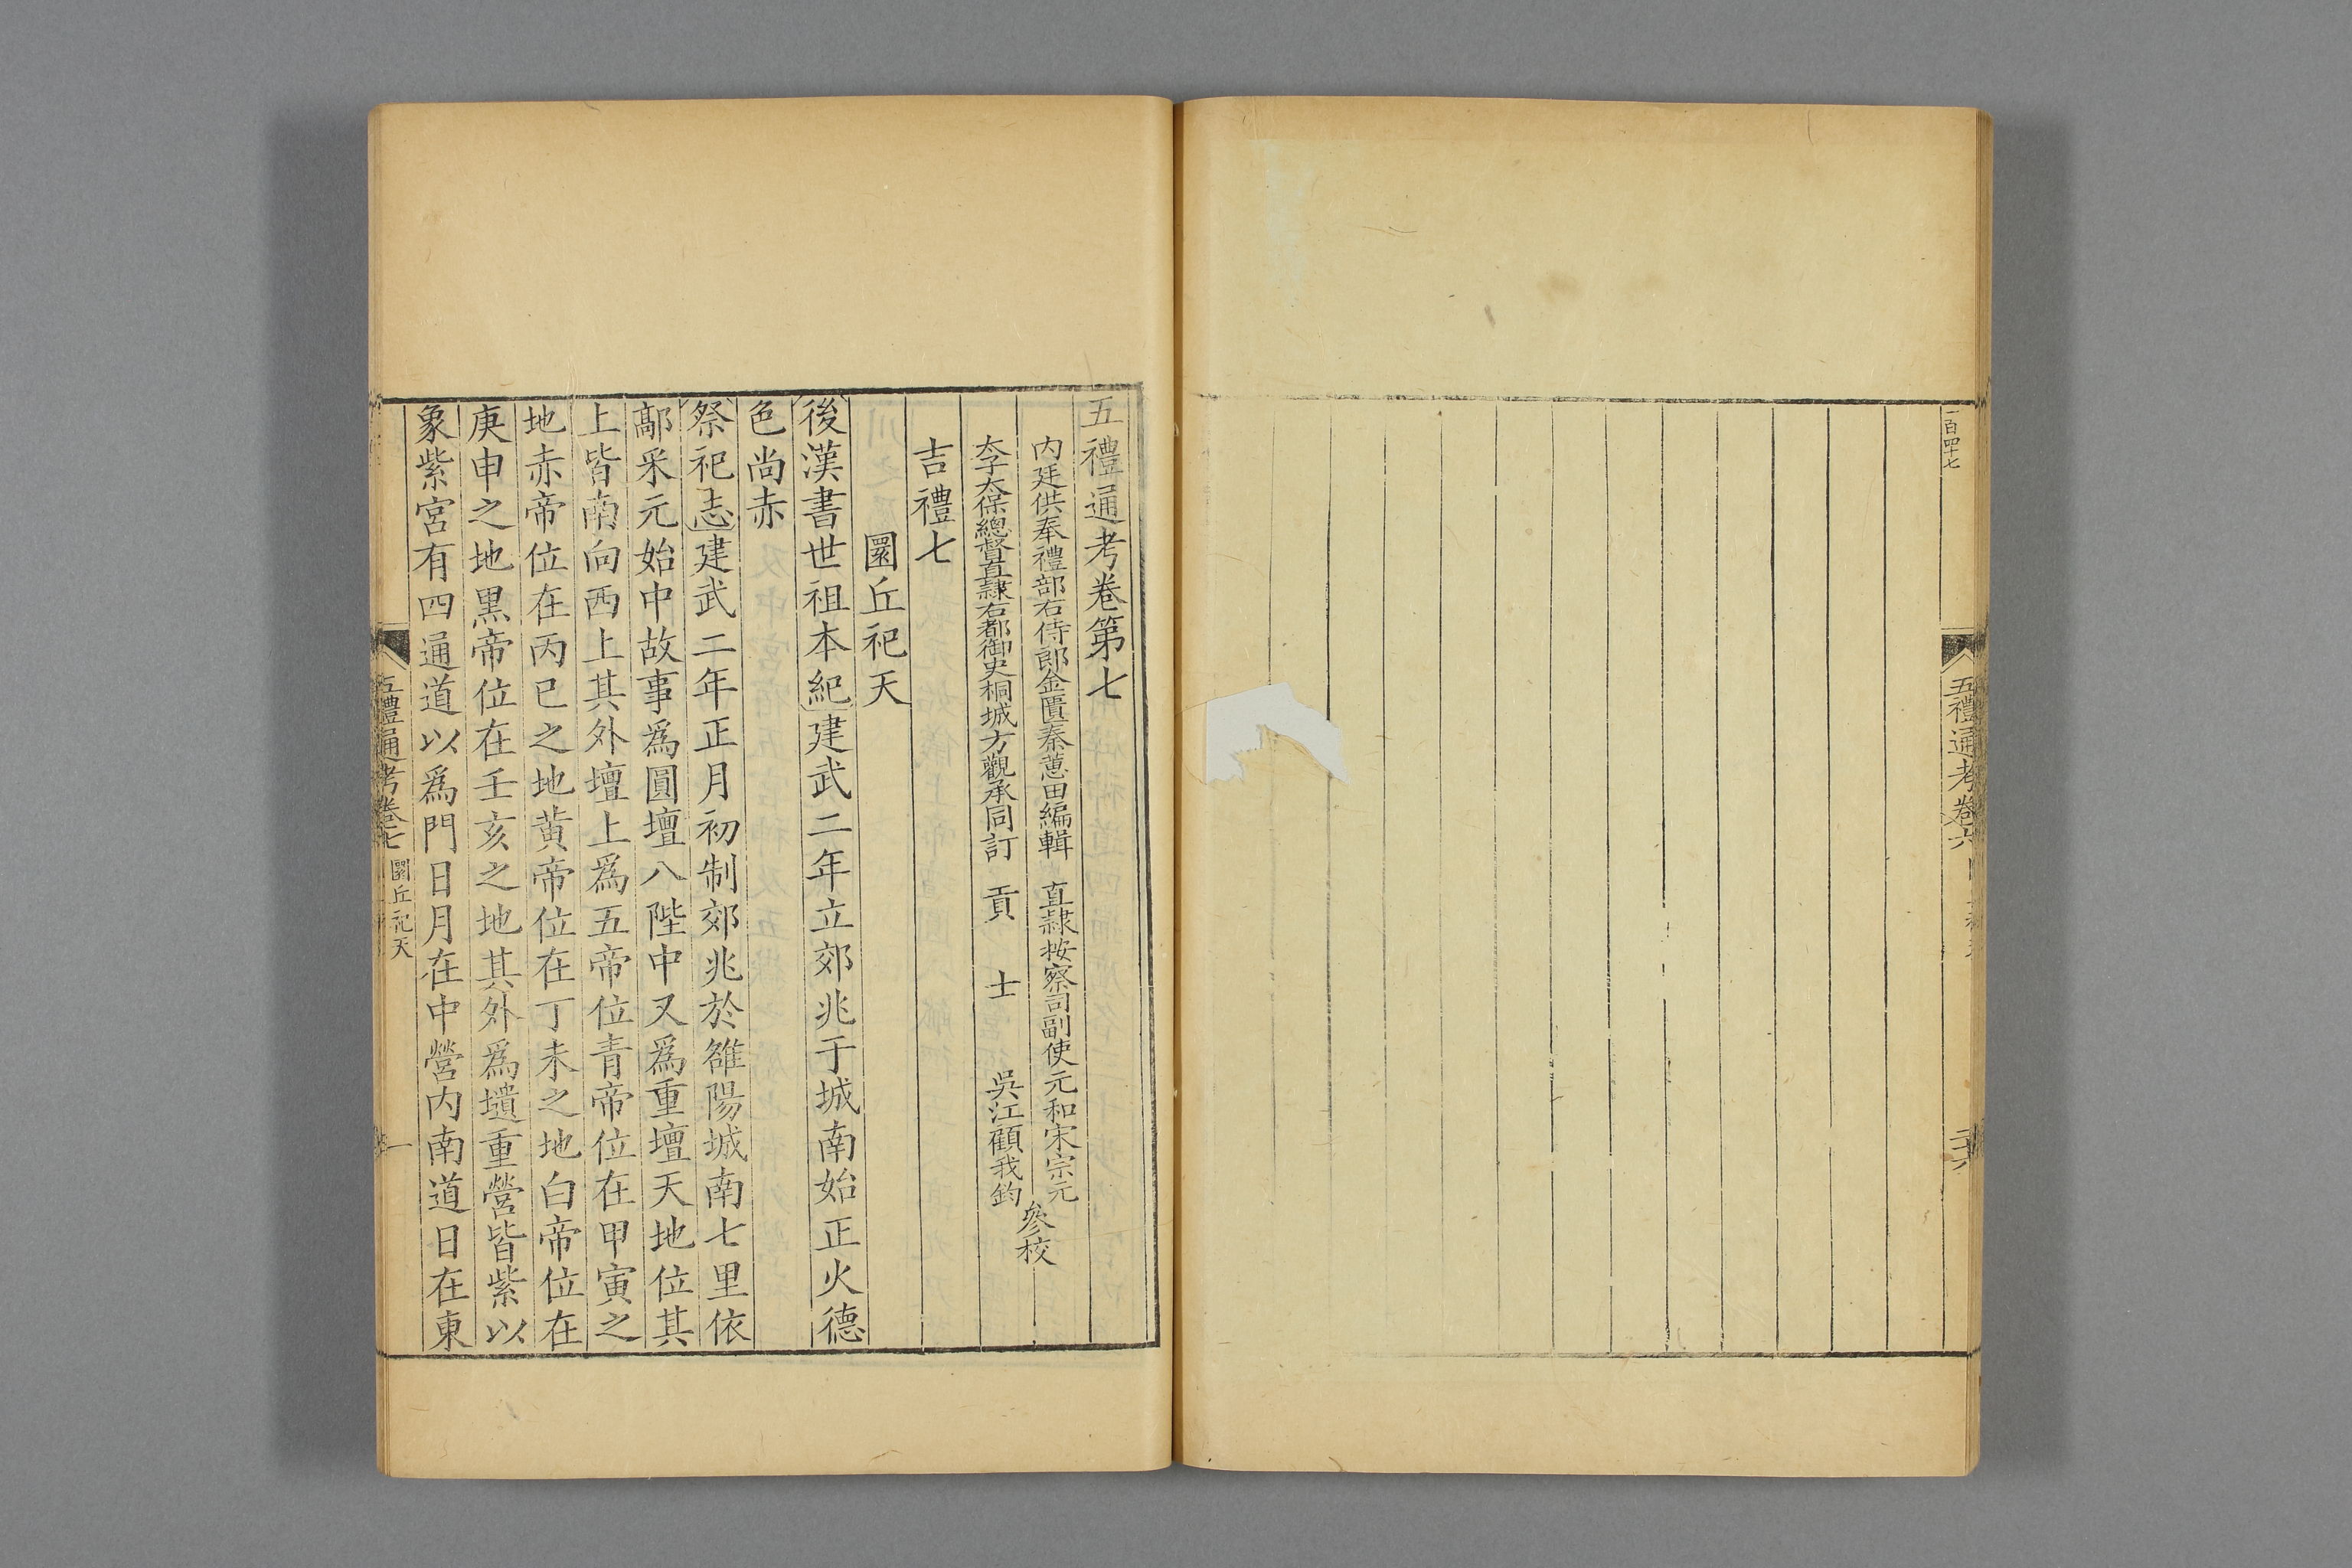 一百四十七
五禮通考卷六
二十六
五禮通考卷第七
內廷供奉禮部右侍郎金匱秦蕙田編輯 直隸按察司副使元和宋宗元
太子太保總督直隸右都御史桐城方觀承同訂 貢士 吳江顧我鈞
參校
吉禮七
圜丘祀天
後漢書世祖本紀建武二年立郊兆于城南始正火德
色尚赤
祭祀志建武二年正月初制郊兆於雒陽城南七里依
鄗采元始中故事爲圓壇八陛中又爲重壇天地位其
上皆南向西上其外壇上爲五帝位青帝位在甲寅之
地赤帝位在丙巳之地黃帝位在丁未之地白帝位在
庚申之地黑帝位在壬亥之地其外爲壝重營皆紫以
象紫宮有四通道以爲門日月在中營內南道日在東
五禮通考卷七 圜丘祀天
一